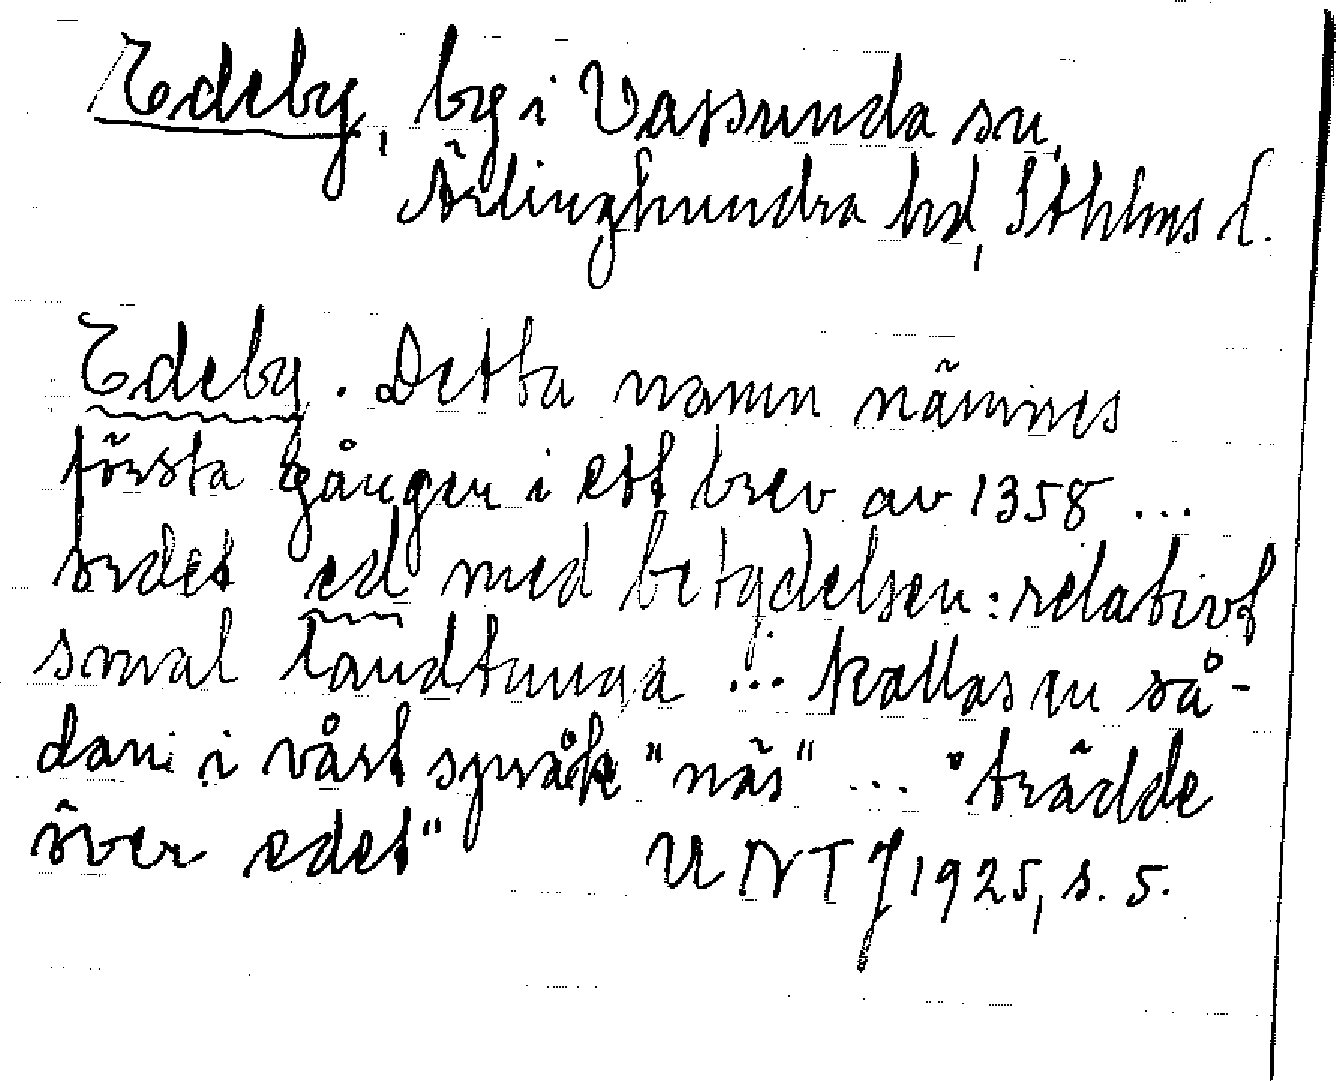 Edeby, by i Vassunda sn,
Ärlinghundra hd, Sthlms l.
Edeby. Detta namn nämnes
första gången i ett brev av 1358 ...
ordet ed med betydelsen: relativt
smal landtunga ... kallas en så-
dan i vårt språk "näs" ... "trädde
över edet" UNT J 1925, s. 5.